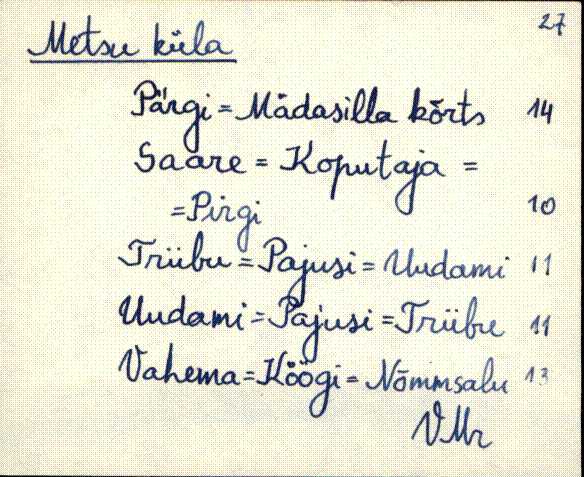 27
Metsu küla
Pärgi = Mädasilla kõrts 14
Saare = Koputaja =
= Pirgi 10
Trübu = Pajusi = Uudami 11
Uudami = Pajusi = Trübu 11
Vahema = Köögi = Nõmmsalu 13
VMr